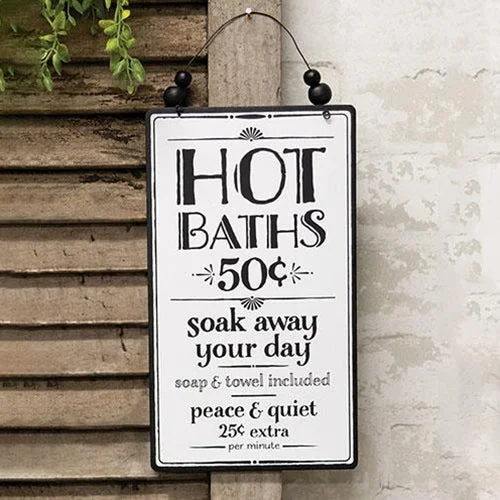 HOT
BATHS
50¢
soak away
your day
soap & towel included
peace & quiet
25¢ extra
per minute